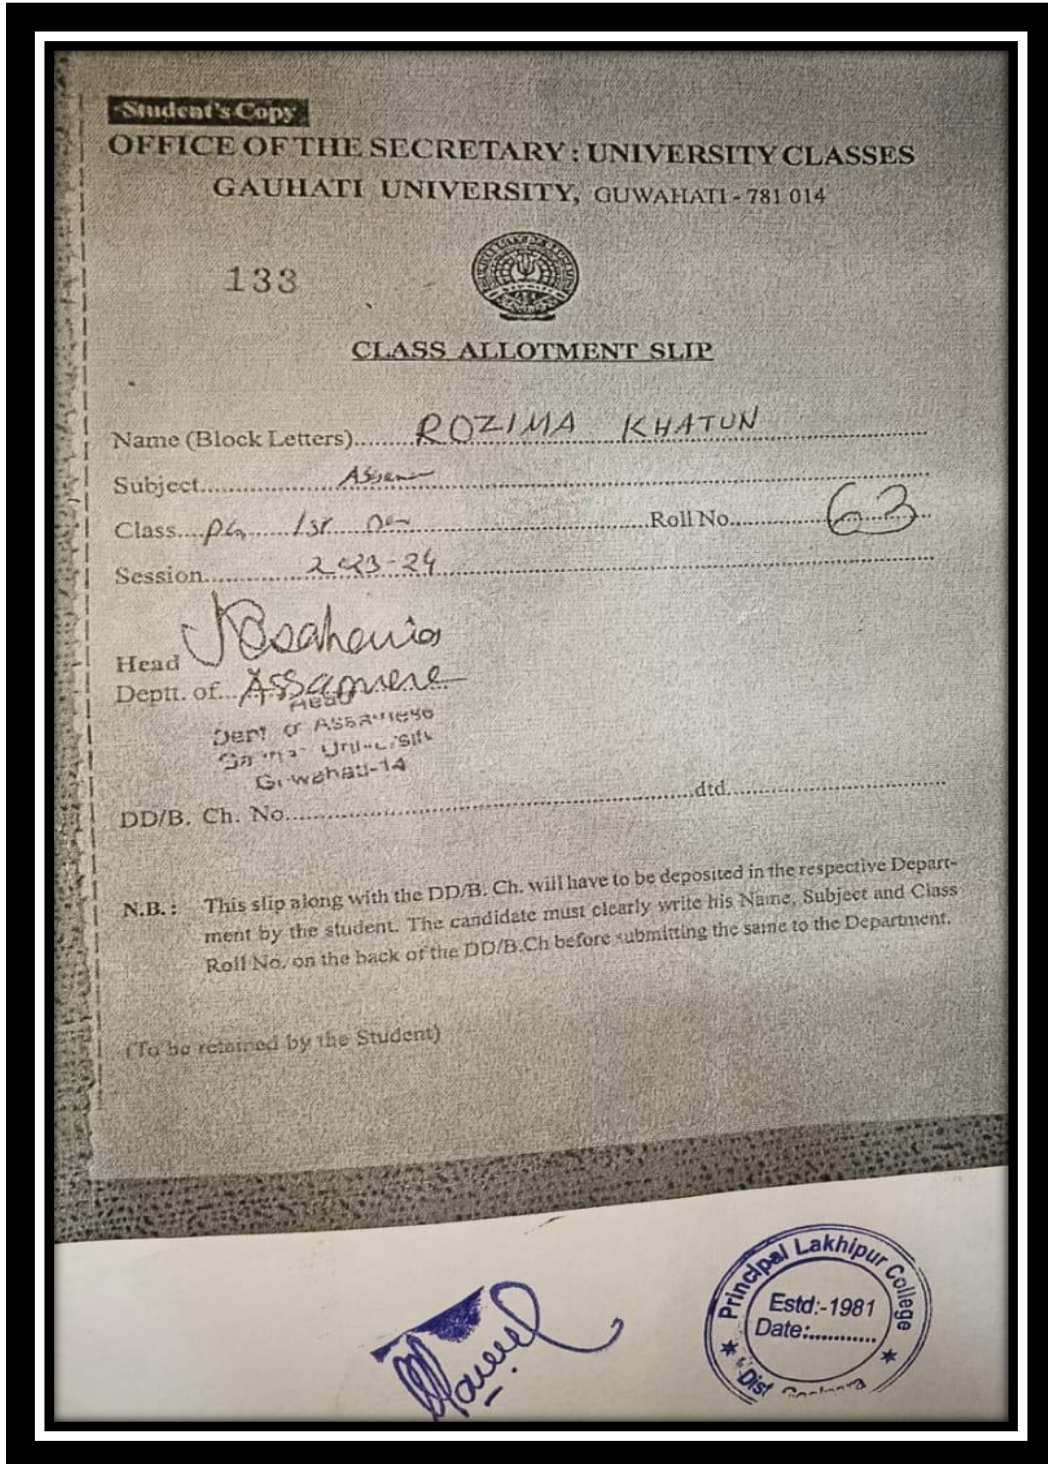 Student's Copy
OFFICE OF THE SECRETARY : UNIVERSITY CLASSES
GAUHATI UNIVERSITY, GUWAHATI - 781 014
133
CLASS ALLOTMENT SLIP
Name (Block Letters)..... ROZIMA KHATUN
Subject.....
Class..... 1st Roll No..... 63
Session..... 2023-24
Head
Deptt. of... Assamese
Head
Dept of Assamese
Guwahati-14
DD/B. Ch. No..... dtd.....
N.B. : This slip along with the DD/B. Ch. will have to be deposited in the respective Depart-
ment by the student. The candidate must clearly write his Name, Subject and Class
Roll No. on the back of the DD/B.Ch before submitting the same to the Department.
(To be retained by the Student)
Principal Lakhipur College
Estd:-1981
Date:............
Dist Goalpara